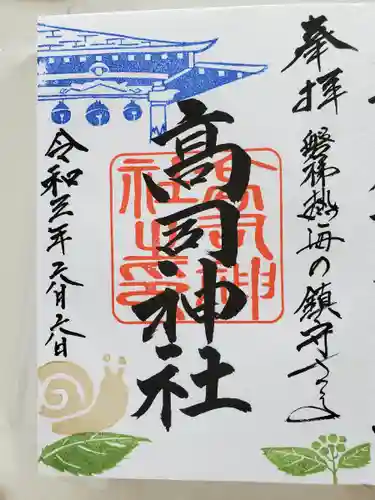 奉拝
磐梯熱海の鎮守さま
高司神社
令和三年六月六日